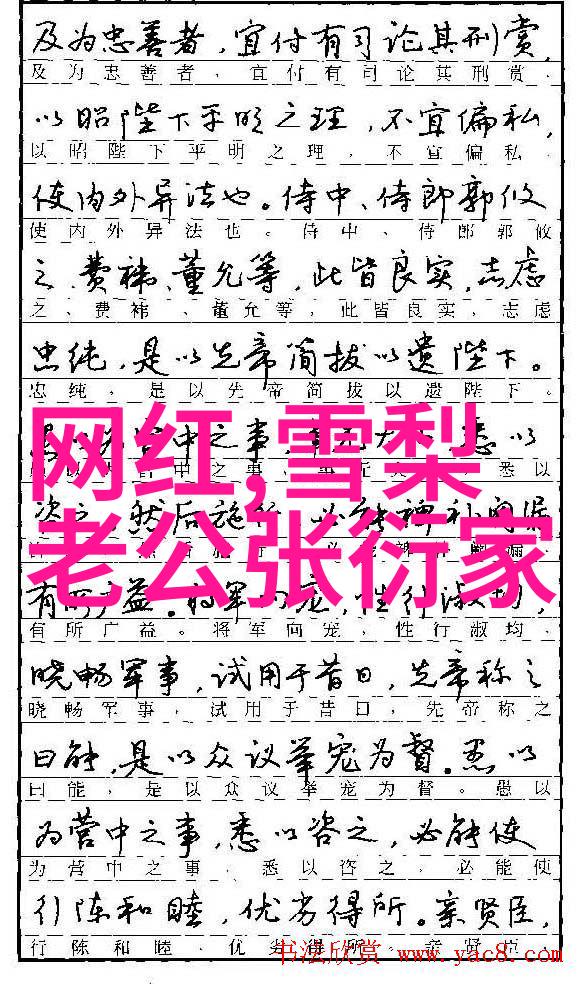 及为忠善者，宜付有司论其刑赏，
及为忠善者，宜付有司论其刑赏，
以昭陛下平明之理，不宜偏私，
以昭陛下平明之理，不宜偏私，
使内外异法也。侍中、侍郎郭攸
使内外异法也。侍中、侍郎郭攸
之、费祎、董允等，此皆良实，志虑
之、费祎、董允等，此皆良实，志虑
忠纯，是以先帝简拔以遗陛下。
忠纯，是以先帝简拔以遗陛下。
中之事，悉以
中之事，悉以
网红,雪梨
咨之，然后施行，必
老公张衍家
有所广益。将军向宠，性行淑均，
有所广益。将军向宠，性行淑均，
晓畅军事，试用于昔日，先帝称之
晓畅军事，试用于昔日，先帝称之
曰能，是以众议举宠为督。愚以
曰能，是以众议举宠为督。愚以
为营中之事，悉以咨之，必能使
为营中之事，悉以咨之，必能使
行陈和睦，优劣得所。亲贤臣，
行陈和睦，优劣得所。亲贤臣，
书法欣赏 www.yac8.com